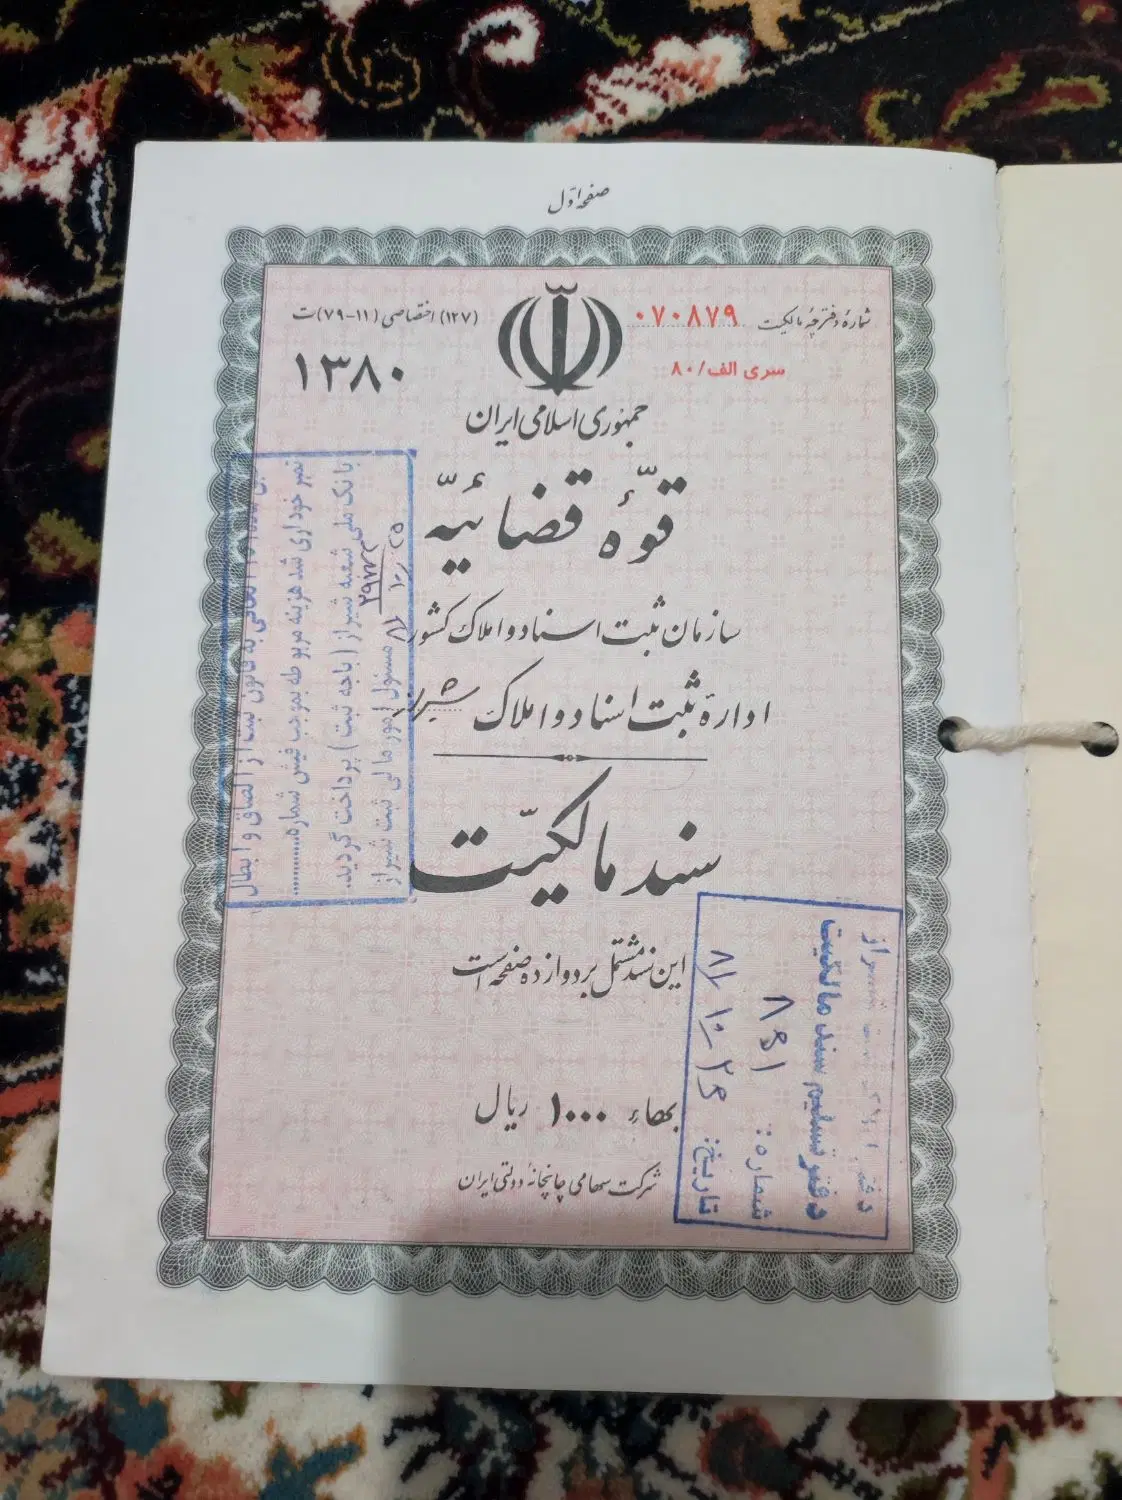 صفحهٔ اوّل
شمارهٔ دفترچهٔ مالکیت ۰۷۰۸۷۹
سری الف/۸۰
(۱۲۷) اختصاصی (۱۱-۷۹)ت
۱۳۸۰
جمهوری اسلامی ایران
قوّهٔ قضائیّه
سازمان ثبت اسناد و املاک کشور
ادارهٔ ثبت اسناد و املاک شیراز
سند مالکیّت
این سند مشتمل بر دوازده صفحه است
بهاء ۱۰۰۰ ریال
شرکت سهامی چاپخانهٔ دولتی ایران
به قانون ثبت از الصاق و ابطال
تمبر خودداری شد هزینه مربوطه بموجب فیش شماره
۲۹۷۷۲
بانک ملی شعبه شیراز (باجه ثبت) پرداخت گردید.
مسئول امور مالی ثبت شیراز
۸۱/۱۰/۲۵
شیراز
دفتر تسلیم سند مالکیت
شماره: ۸۶۱
تاریخ: ۸۱/۱۰/۲۶